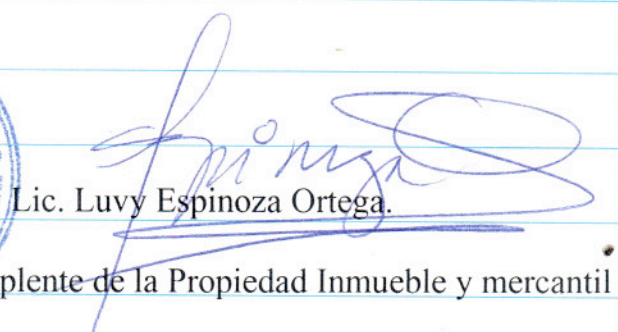 Espinoza
Lic. Luvy Espinoza Ortega.
plente de la Propiedad Inmueble y mercantil